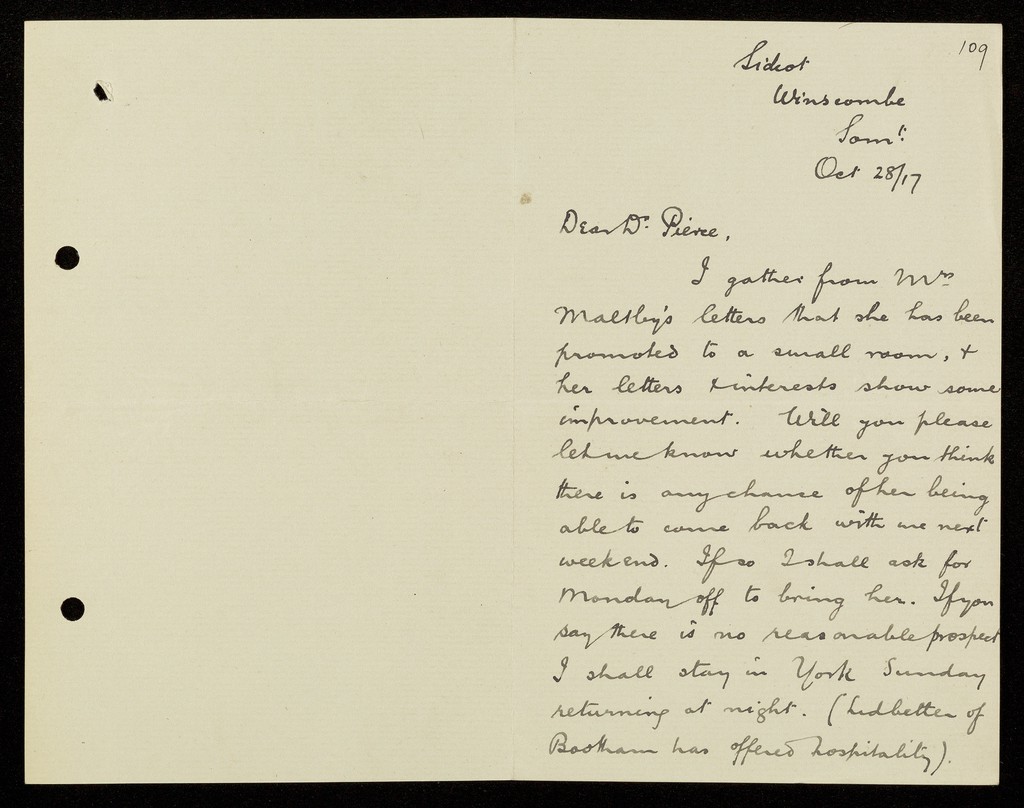 109
Sidcot
Winscombe
Somt.
Oct 28/17
Dear Dr. Pierce,
I gather from Mrs
Maltby's letters that she has been
promoted to a small room, &
her letters & interests show some
improvement. Will you please
let me know whether you think
there is any chance of her being
able to come back with me next
week end. If so I shall ask for
Monday off to bring her. If you
say there is no reasonable prospect
I shall stay in York Sunday
returning at night. (Ledbetter of
Bootham has offered hospitality).